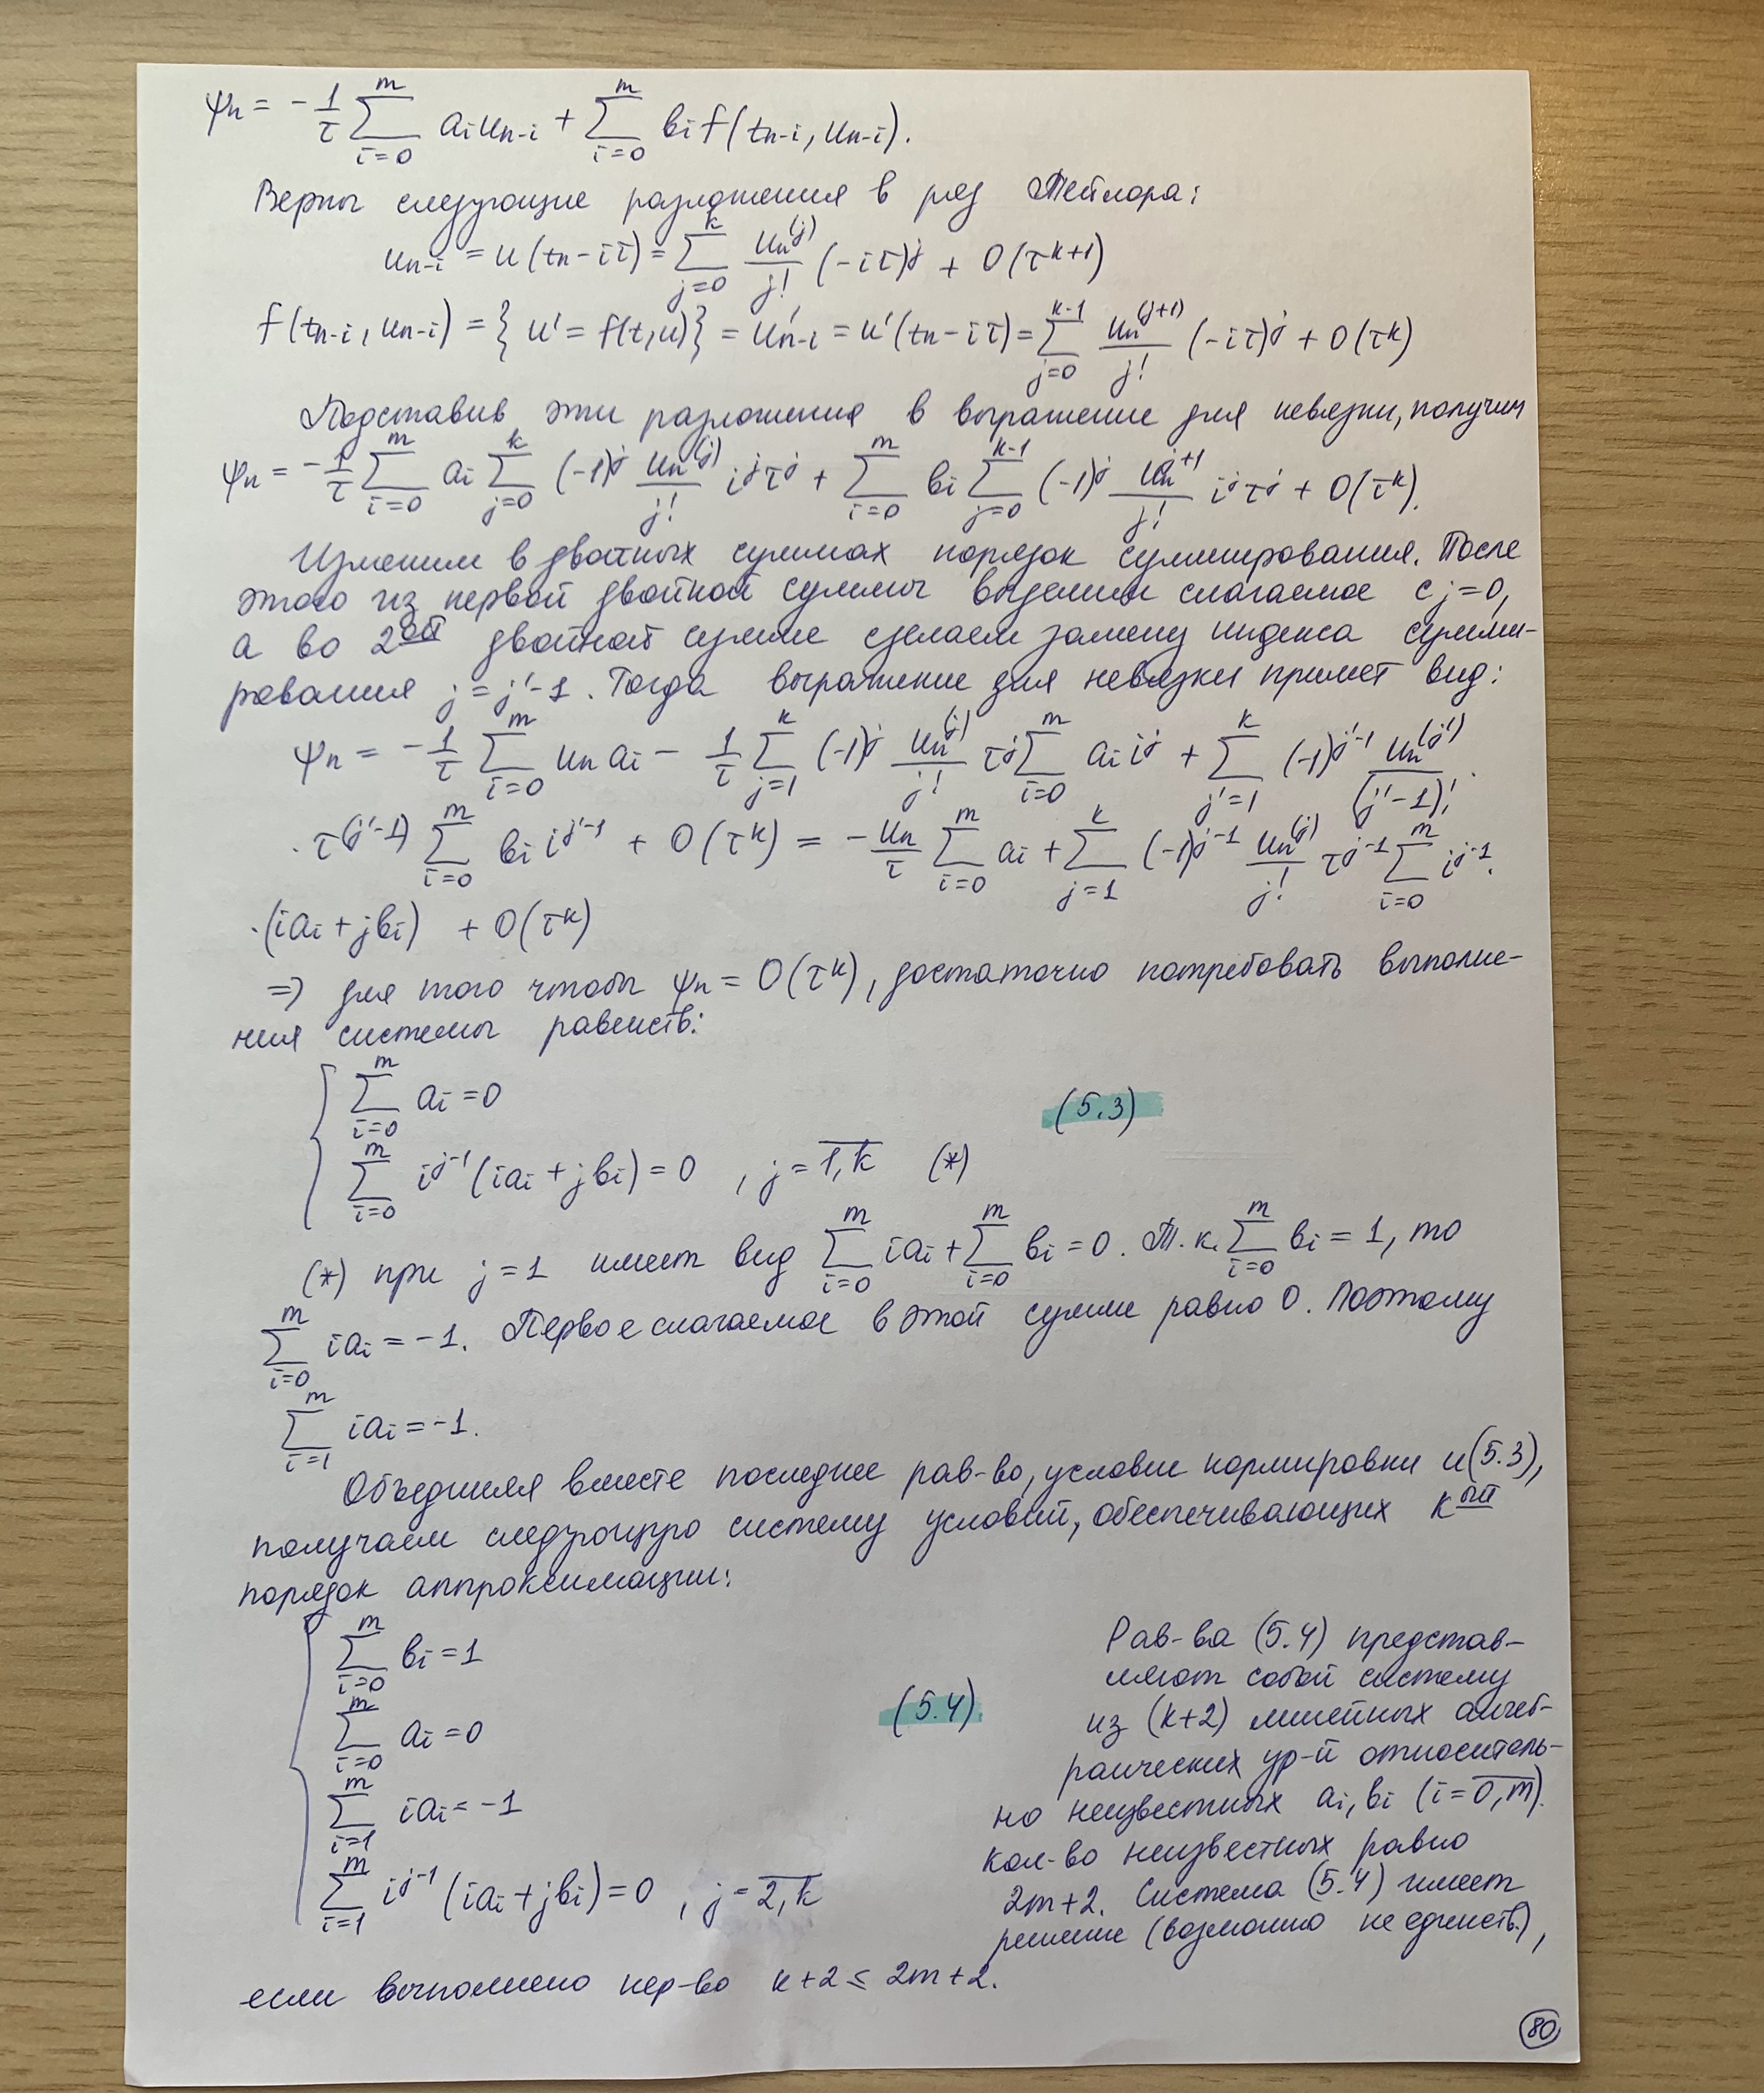 ψn = -1/τ ∑_{i=0}^{m} aᵢu_{n-i} + ∑_{i=0}^{m} bᵢf(t_{n-i}, u_{n-i}).
Верны следующие разложения в ряд Тейлора:
u_{n-i} = u(tn-iτ) = ∑_{j=0}^{k} un^{(j)}/j! (-iτ)^j + O(τ^{k+1})
f(t_{n-i}, u_{n-i}) = { u' = f(t,u)} = u'_{n-i} = u'(tn-iτ) = ∑_{j=0}^{k-1} un^{(j+1)}/j! (-iτ)^j + O(τ^k)
Подставив эти разложения в выражение для невязки, получим
ψn = -1/τ ∑_{i=0}^{m} aᵢ ∑_{j=0}^{k} (-1)^j un^{(j)}/j! i^j τ^j + ∑_{i=0}^{m} bᵢ ∑_{j=0}^{k-1} (-1)^j un^{j+1}/j! i^j τ^j + O(τ^k).
Изменим в двойных суммах порядок суммирования. После
этого из первой двойной суммы выделим слагаемое с j=0,
а во 2ой двойной сумме сделаем замену индекса сумми-
рования j = j'-1. Тогда выражение для невязки примет вид:
ψn = -1/τ ∑_{i=0}^{m} un aᵢ - 1/τ ∑_{j=1}^{k} (-1)^j un^{(j)}/j! τ^j ∑_{i=0}^{m} aᵢ i^j + ∑_{j'=1}^{k} (-1)^{j'-1} un^{(j')}/(j'-1)! ·
· τ^{(j'-1)} ∑_{i=0}^{m} bᵢ i^{j'-1} + O(τ^k) = -un/τ ∑_{i=0}^{m} aᵢ + ∑_{j=1}^{k} (-1)^{j-1} un^{(j)}/j! τ^{j-1} ∑_{i=0}^{m} i^{j-1} ·
· (iaᵢ + jbᵢ) + O(τ^k)
=> для того чтобы ψn = O(τ^k), достаточно потребовать выполне-
ния системы равенств:
∑_{i=0}^{m} aᵢ = 0
(5.3)
∑_{i=0}^{m} i^{j-1}(iaᵢ + jbᵢ) = 0 , j = \overline{1,k} (*)
(*) при j=1 имеет вид ∑_{i=0}^{m} iaᵢ + ∑_{i=0}^{m} bᵢ = 0. Т.к. ∑_{i=0}^{m} bᵢ = 1, то
∑_{i=0}^{m} iaᵢ = -1. Первое слагаемое в этой сумме равно 0. Поэтому
∑_{i=1}^{m} iaᵢ = -1.
Объединяя вместе последнее рав-во, условие нормировки и (5.3),
получаем следующую систему условий, обеспечивающих kый
порядок аппроксимации:
∑_{i=0}^{m} bᵢ = 1
∑_{i=0}^{m} aᵢ = 0
(5.4)
∑_{i=1}^{m} iaᵢ = -1
∑_{i=1}^{m} i^{j-1} (iaᵢ + jbᵢ) = 0 , j = \overline{2,k}
Рав-ва (5.4) представ-
ляют собой систему
из (k+2) линейных алгеб-
раических ур-й относитель-
но неизвестных aᵢ, bᵢ (i = \overline{0,m}).
Кол-во неизвестных равно
2m+2. Система (5.4) имеет
решение (возможно не единств.),
если выполнено нер-во k+2 ≤ 2m+2.
80